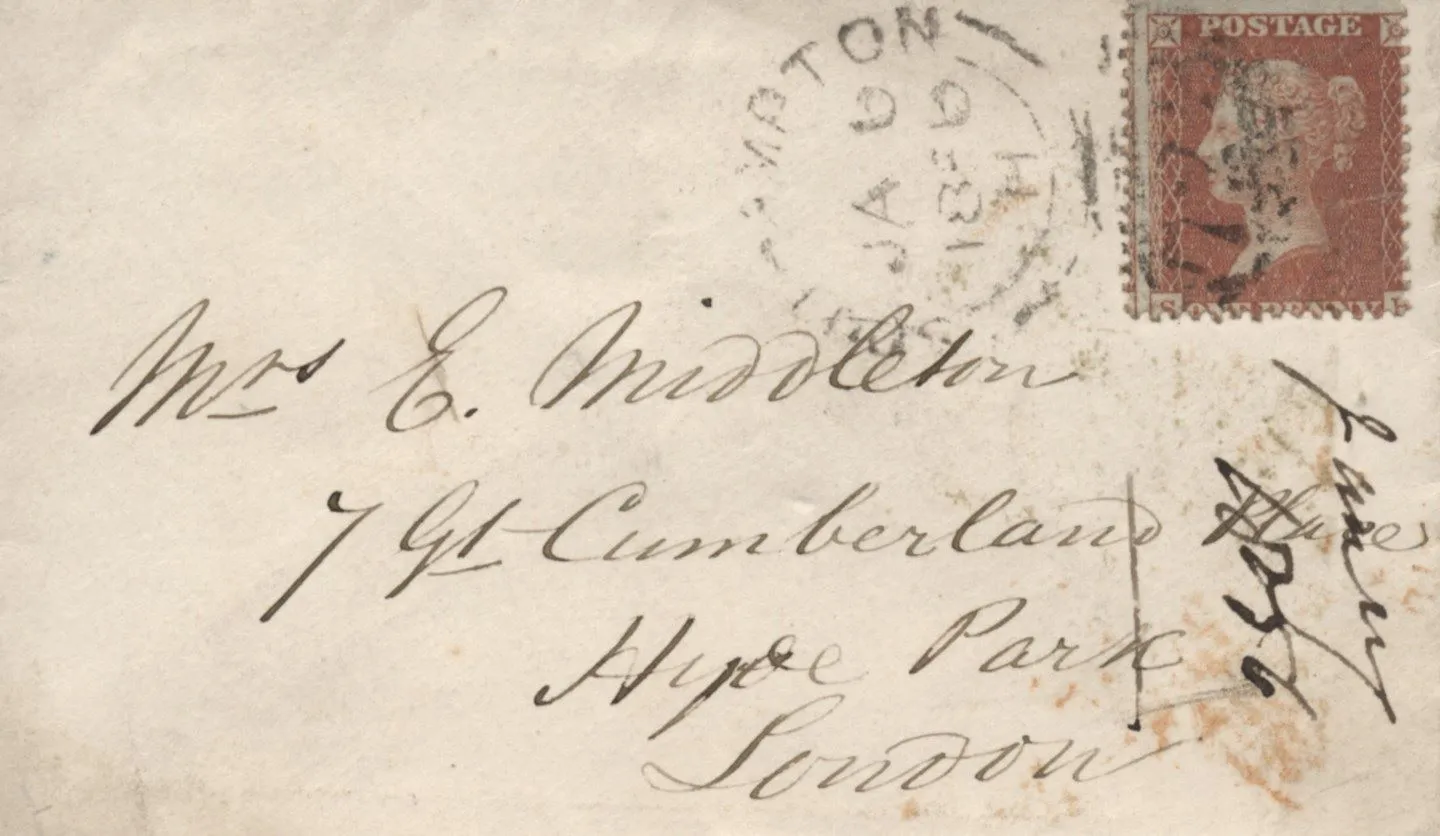 POSTAGE
ONE PENNY
JA 9
Mrs E. Middleton
7 Gt Cumberland Place
Hyde Park
London